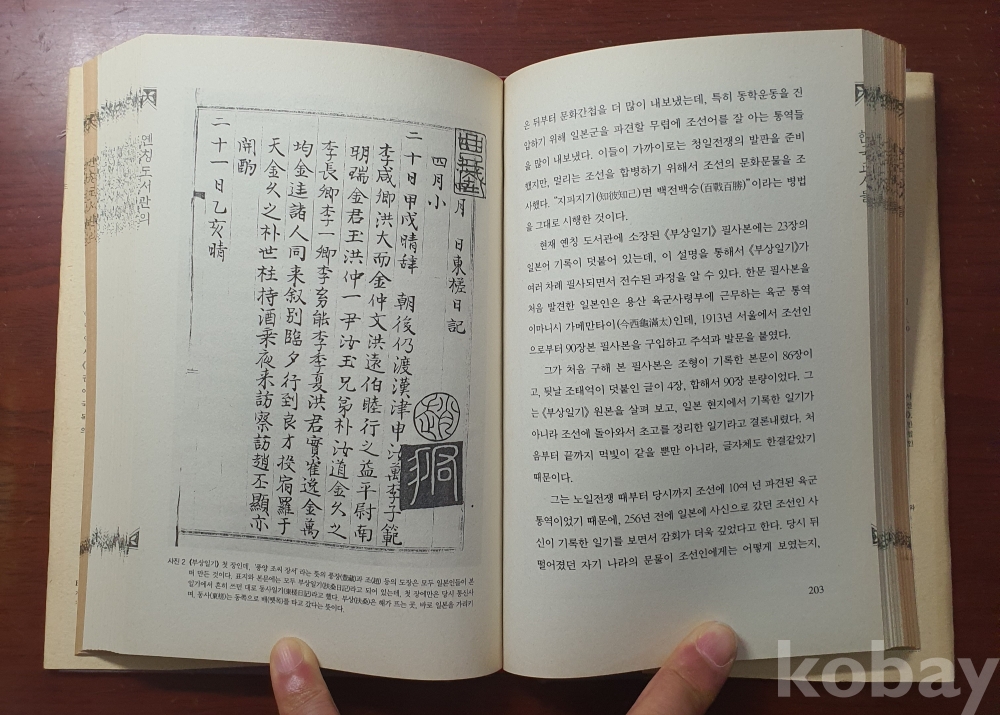 옌칭도서관의
日東槎日記
四月小
二十日甲戌晴辞 朝後仍渡漢津申汝萬李子範
李咸卿洪大而金仲文洪遠伯睦行之益平尉南
明瑞金君玉洪仲一尹汝玉兄弟朴汝道金久之
李長卿李一卿李
均金逵諸人同来叙别臨夕行到良才投宿羅子
天金久之朴世柱持酒乘夜来訪察訪趙丕顯亦
開酌
二十一日乙亥晴
사진 2 《부상일기》 첫 장인데, '풍양 조씨 장서' 라는 뜻의 풍장(豊藏)과 조(趙) 등의 도장은 모두 일본인들이 본
떠 만든 것이다. 표지와 본문에는 모두 부상일기(扶桑日記)라고 되어 있는데, 첫 장에만은 당시 통신사
일기에서 흔히 쓰던 대로 동사일기(東槎日記)라고 했다. 부상(扶桑)은 해가 뜨는 곳, 바로 일본을 가리키
며, 동사(東槎)는 동쪽으로 배(뗏목)를 타고 갔다는 뜻이다.
한국
은 뒤부터 문화간첩을 더 많이 내보냈는데, 특히 동학운동을 진
압하기 위해 일본군을 파견할 무렵에 조선어를 잘 아는 통역들
을 많이 내보냈다. 이들이 가까이로는 청일전쟁의 발판을 준비
했지만, 멀리는 조선을 합병하기 위해서 조선의 문화문물을 조
사했다. “지피지기(知彼知己)면 백전백승(百戰百勝)”이라는 병법
을 그대로 시행한 것이다.
현재 옌칭 도서관에 소장된 《부상일기》 필사본에는 23장의
일본어 기록이 덧붙어 있는데, 이 설명을 통해서 《부상일기》가
여러 차례 필사되면서 전수된 과정을 알 수 있다. 한문 필사본을
처음 발견한 일본인은 용산 육군사령부에 근무하는 육군 통역
이마니시 가메만타이(今西龜滿太)인데, 1913년 서울에서 조선인
으로부터 90장본 필사본을 구입하고 주석과 발문을 붙였다.
그가 처음 구해 본 필사본은 조형이 기록한 본문이 86장이
고, 뒷날 조태억이 덧붙인 글이 4장, 합해서 90장 분량이었다. 그
는 《부상일기》 원본을 살펴 보고, 일본 현지에서 기록한 일기가
아니라 조선에 돌아와서 초고를 정리한 일기라고 결론내렸다. 처
음부터 끝까지 먹빛이 같을 뿐만 아니라, 글자체도 한결같았기
때문이다.
그는 노일전쟁 때부터 당시까지 조선에 10여 년 파견된 육군
통역이었기 때문에, 256년 전에 일본에 사신으로 갔던 조선인 사
신이 기록한 일기를 보면서 감회가 더욱 깊었다고 한다. 당시 뒤
떨어졌던 자기 나라의 문물이 조선인에게는 어떻게 보였는지,
203
kobay